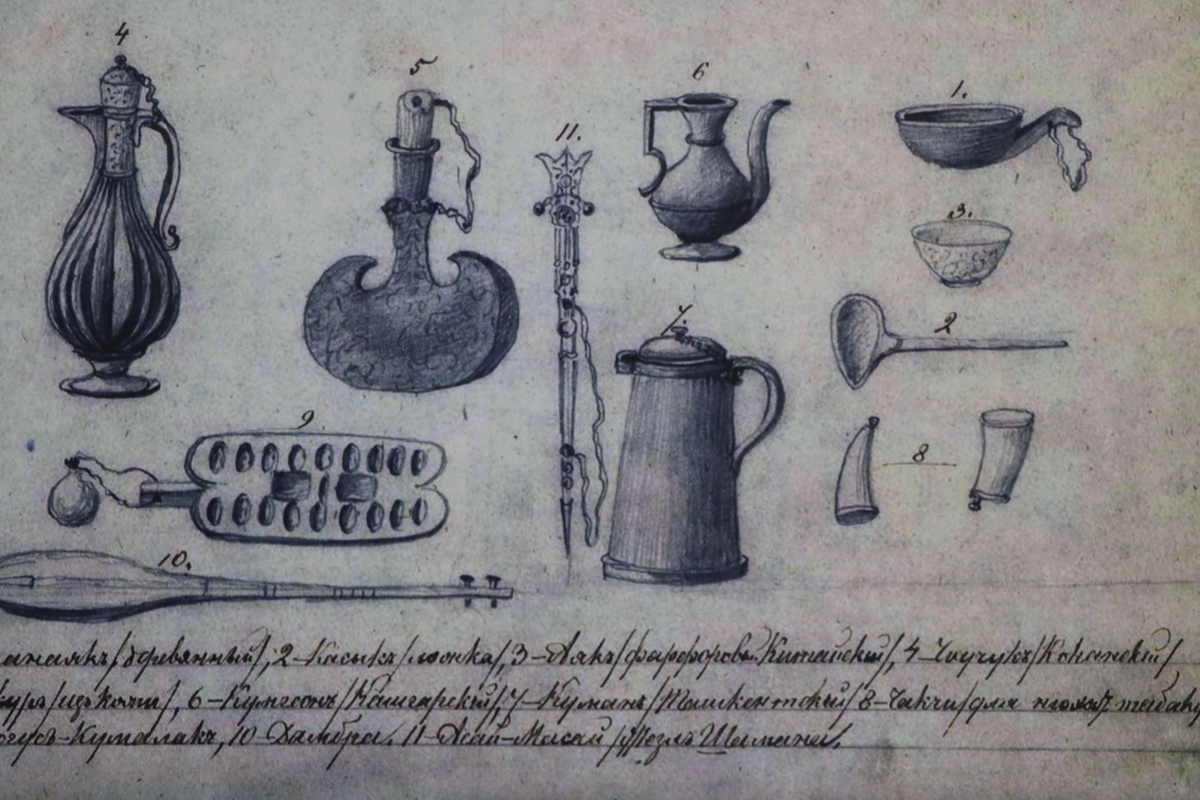 4
5
6
1.
11.
3.
2
7.
9
8
10.
анаякъ/деревянный/, 2-Касыкъ/ложка/, 3-Аякъ/фарфоровый Китайский/, 4-Чаучукъ/Коканский/
/изъ кожи/, 6-Кумгонъ/Кашгарский/, 7-Куманъ/Ташкентский/ 8-Чакчи/для нюхат. табаку
Кумалакъ, 10-Дамбра. 11-Асай-Масай/Жезлъ Шамана/.